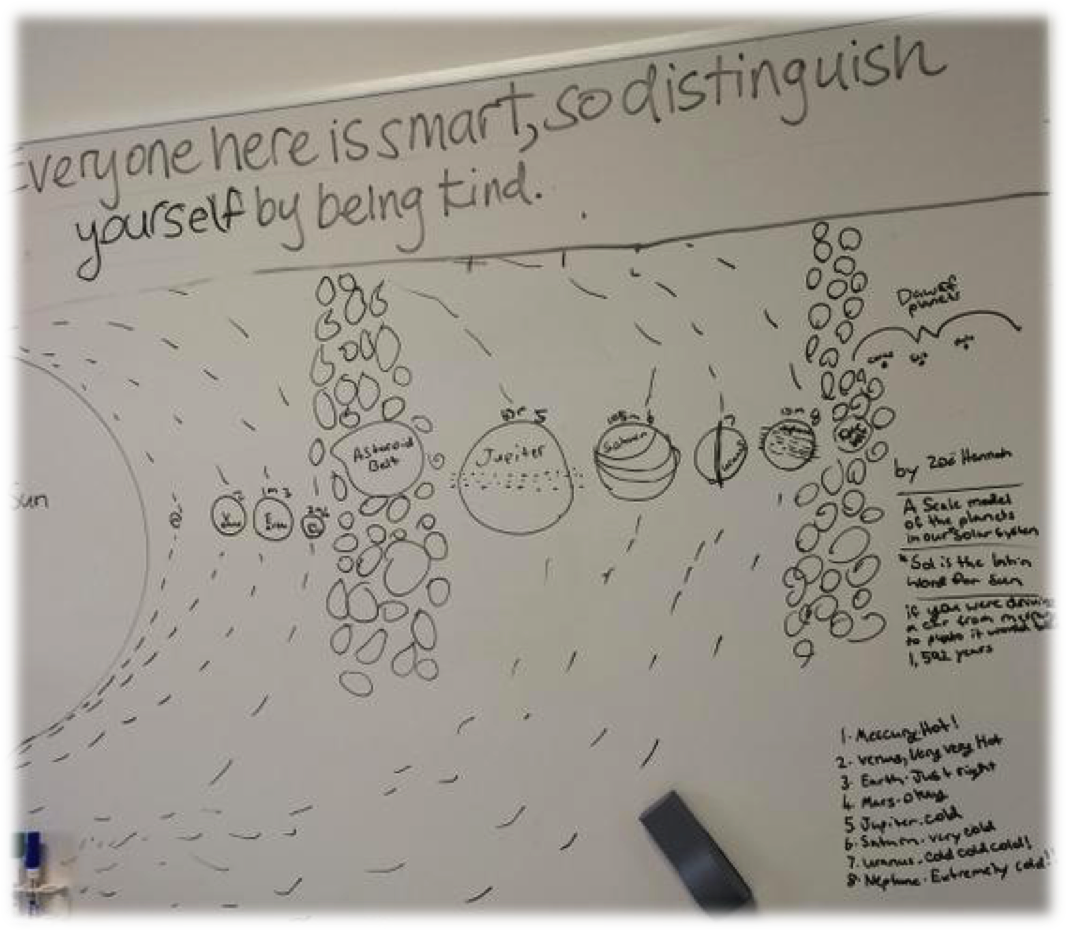 Everyone here is smart, so distinguish
yourself by being kind.
Sun
Asteroid
Belt
5
Jupiter
6
Saturn
7
8
Dawrf
planets
by Zoë Hannah
A Scale model
of the planets
in our Solar System
*Sol is the latin
word for sun
if you were driving
a car from
to pluto it would
1,592 years
1. Mercury. Hot!
2. Venus, Very very Hot
3 Earth. Just right
4 Mars. okay
5 Jupiter. cold
6. Saturn. very cold
7. Uranus. cold cold cold!
8. Neptune. Extremely cold!!